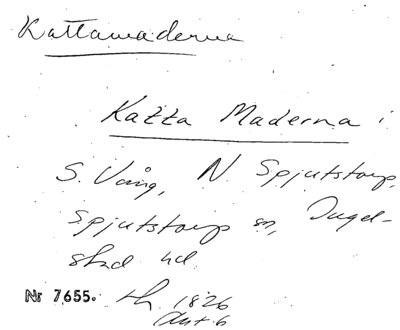 Kattamaderna
Katta Maderna i
S. Vång, N. Spjutstorp,
Spjutstorp sn, Ingel-
stad hd.
Nr 7655. lh. 1826
Akt. 6